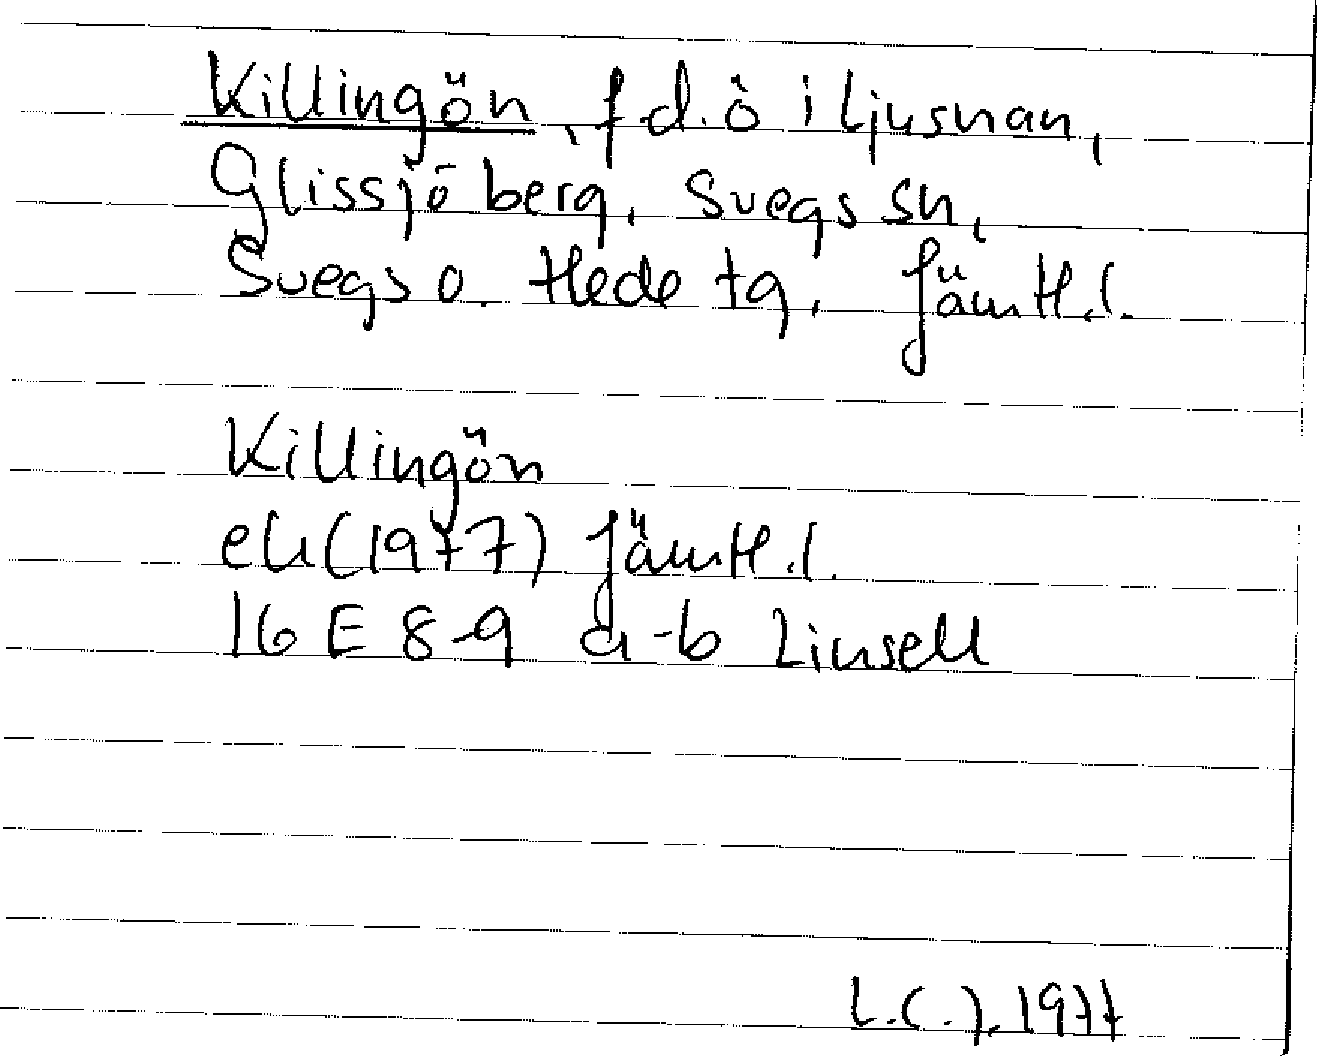 Killingön, f d. ö i Ljusnan,
Glissjöberg, Svegs sn,
Svegs o. Hede tg, Jämtl.l.
Killingön
ek (1977) Jämtl.l.
16 E 8-9 a-b Linsell
L.C.J. 1977